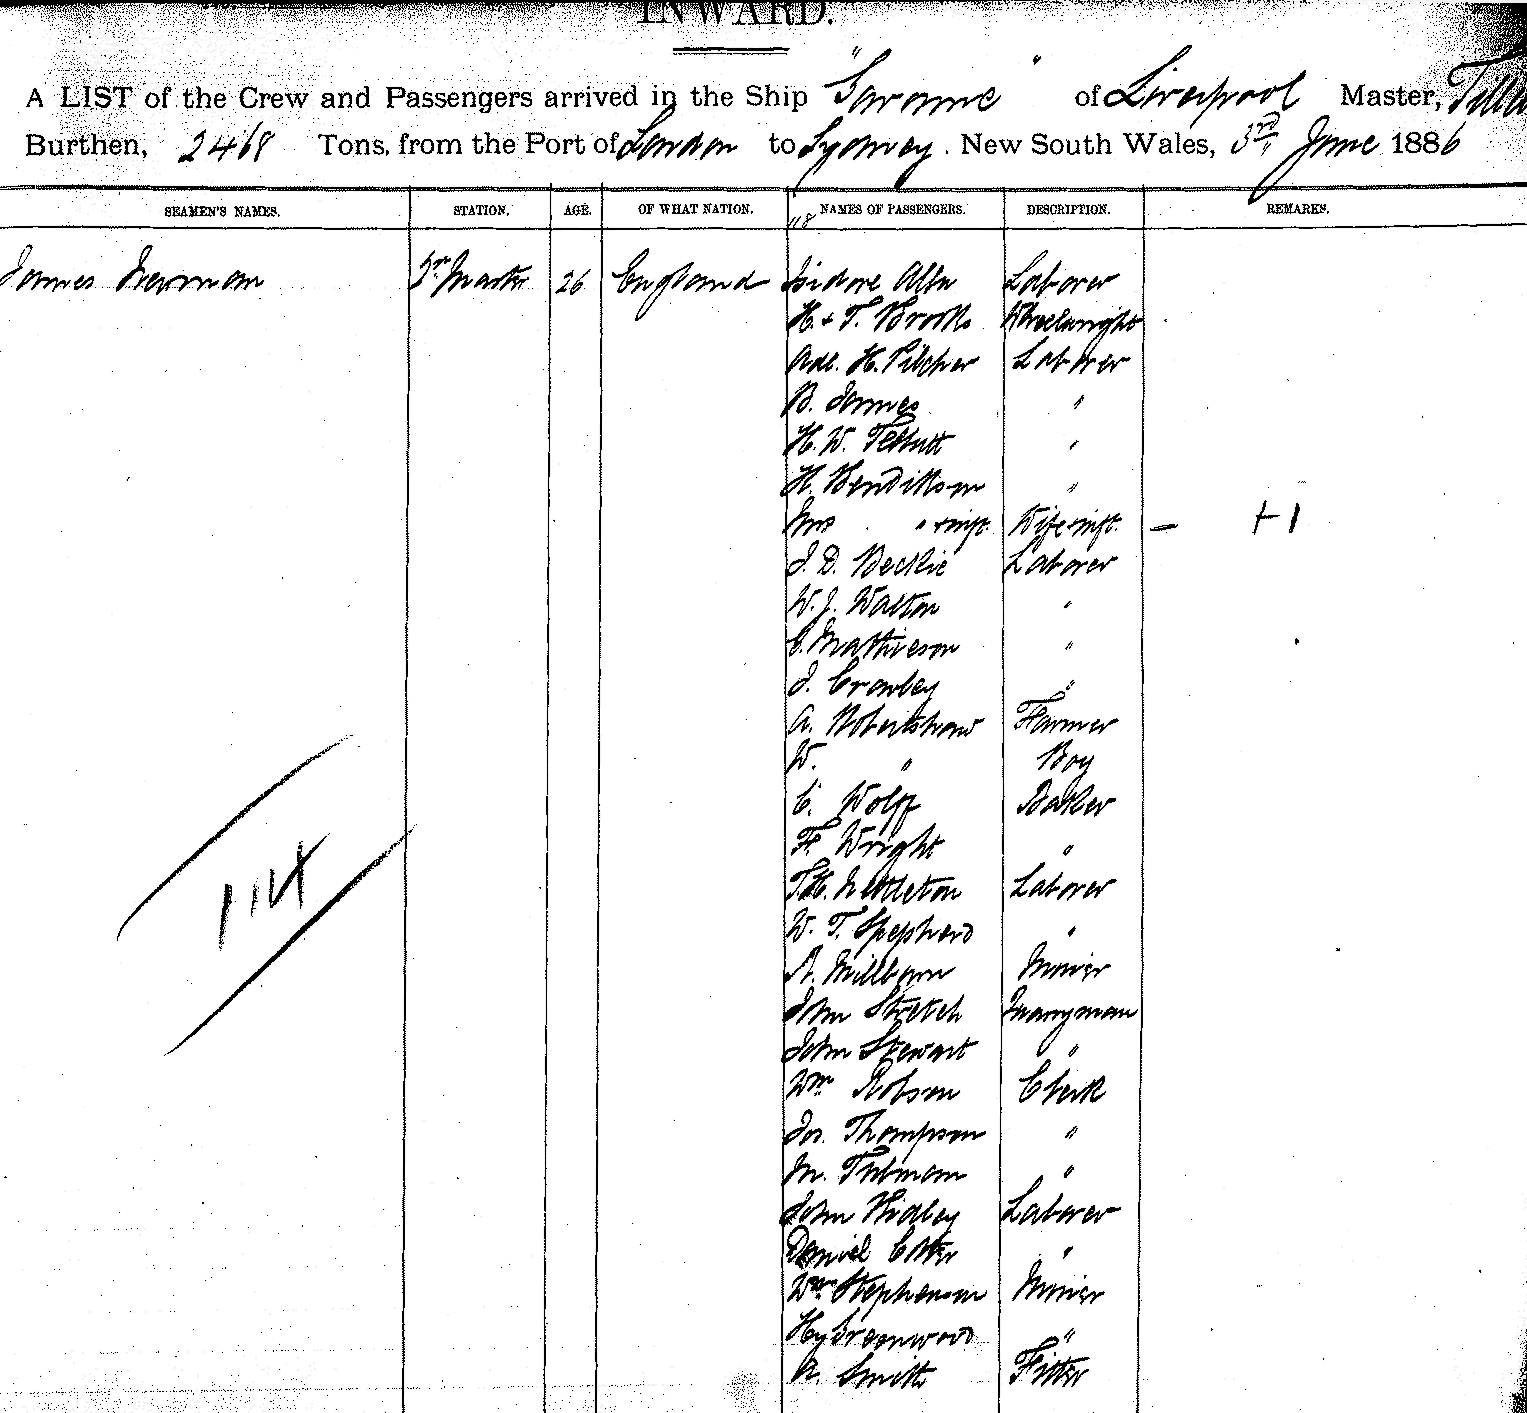 INWARD.
A LIST of the Crew and Passengers arrived in the Ship " " of Liverpool Master,
Burthen, 2468 Tons, from the Port of London to Sydney. New South Wales, 3rd June 1886
SEAMEN'S NAMES. STATION. AGE. OF WHAT NATION. NAMES OF PASSENGERS. DESCRIPTION. REMARKS.
118
James Newman 26 England Isidore Laborer
H. & T. Brooks Wheelwright
H. Pilcher Laborer
B. James "
H. W. Tebbutt "
H. Bendittson "
Mrs " + inft. Wife + inft. — +1
J. D. Beckie Laborer
W. J. Walton "
C. Mathieson "
J. Crowley "
A. Robertshaw Farmer
W. " Boy
C. Wolff Baker
F. Wright "
T. H. Nettleton Laborer
W. T. Shepherd "
R. Millburn Miner
John Stretch Quarryman
John Stewart "
Wm Robson Clerk
Jos. Thompson "
M. Tubman "
John Hidley Laborer
Daniel Cotter "
Wm Stephenson Miner
Hy Greenwood "
A. Smith Fitter